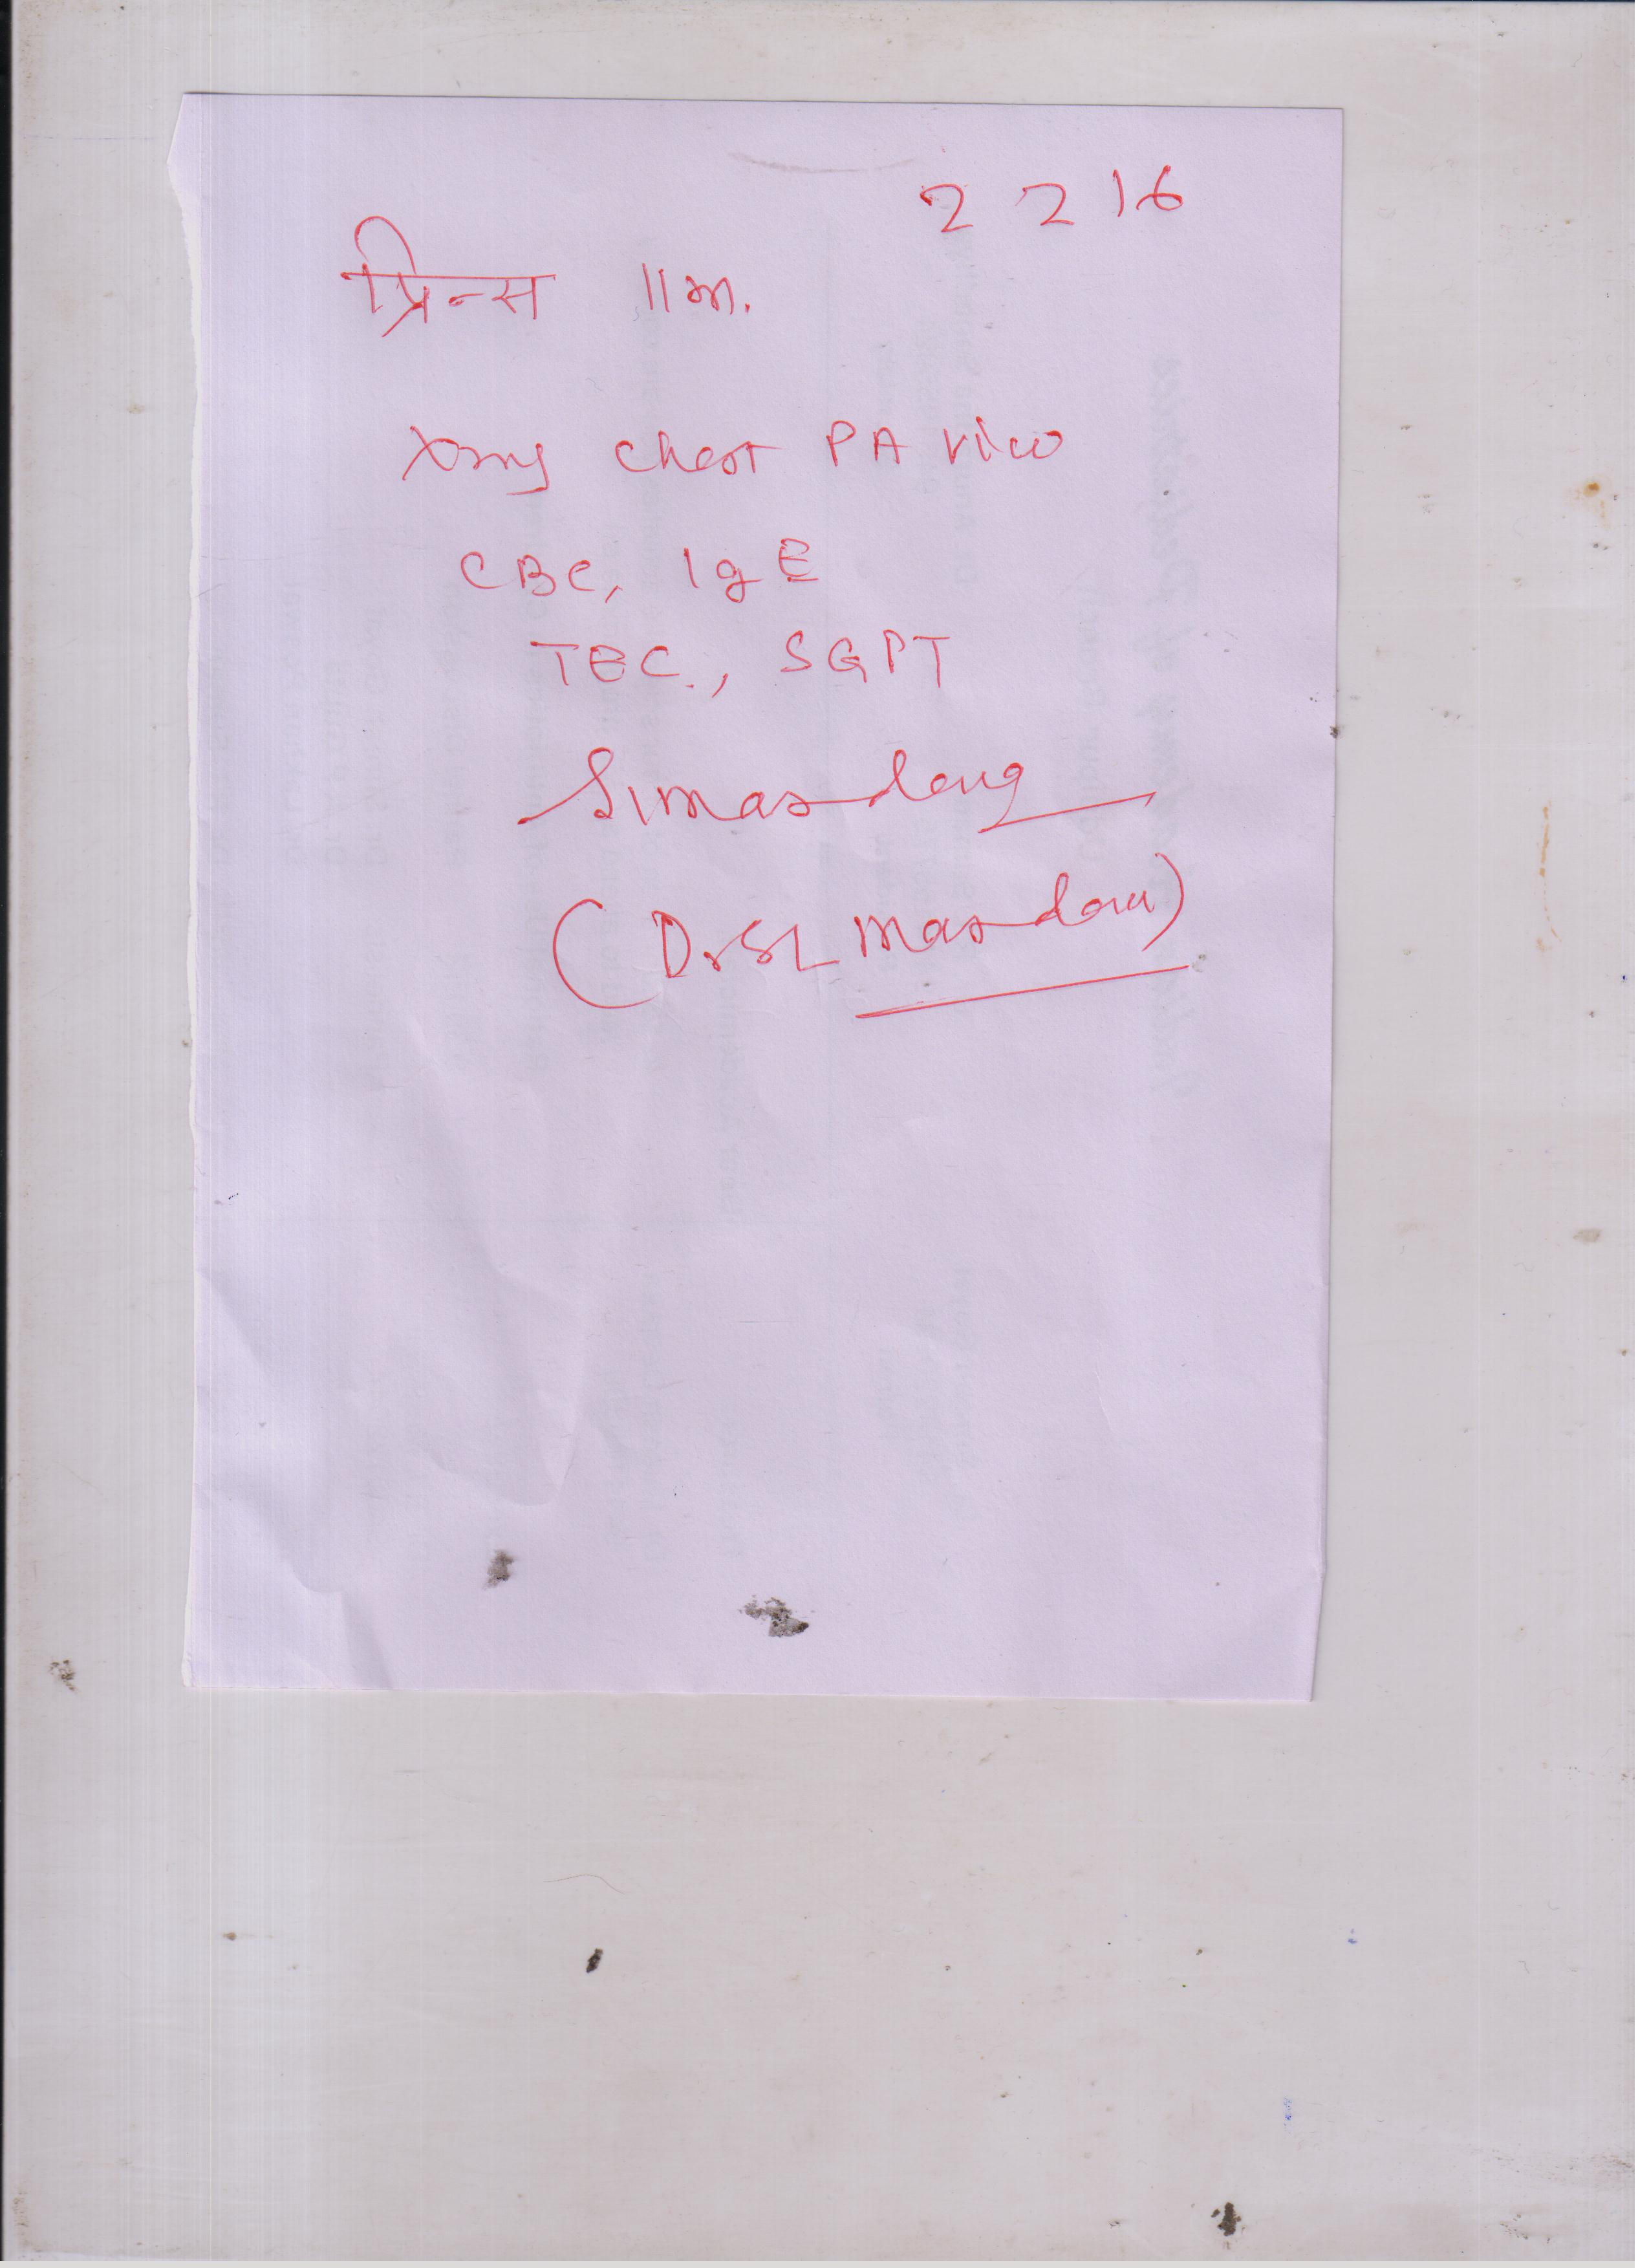 2 2 16
प्रिन्स 11 m.
Xray Chest PA View
CBC, IgE
TEC., SGPT
(Dr SL